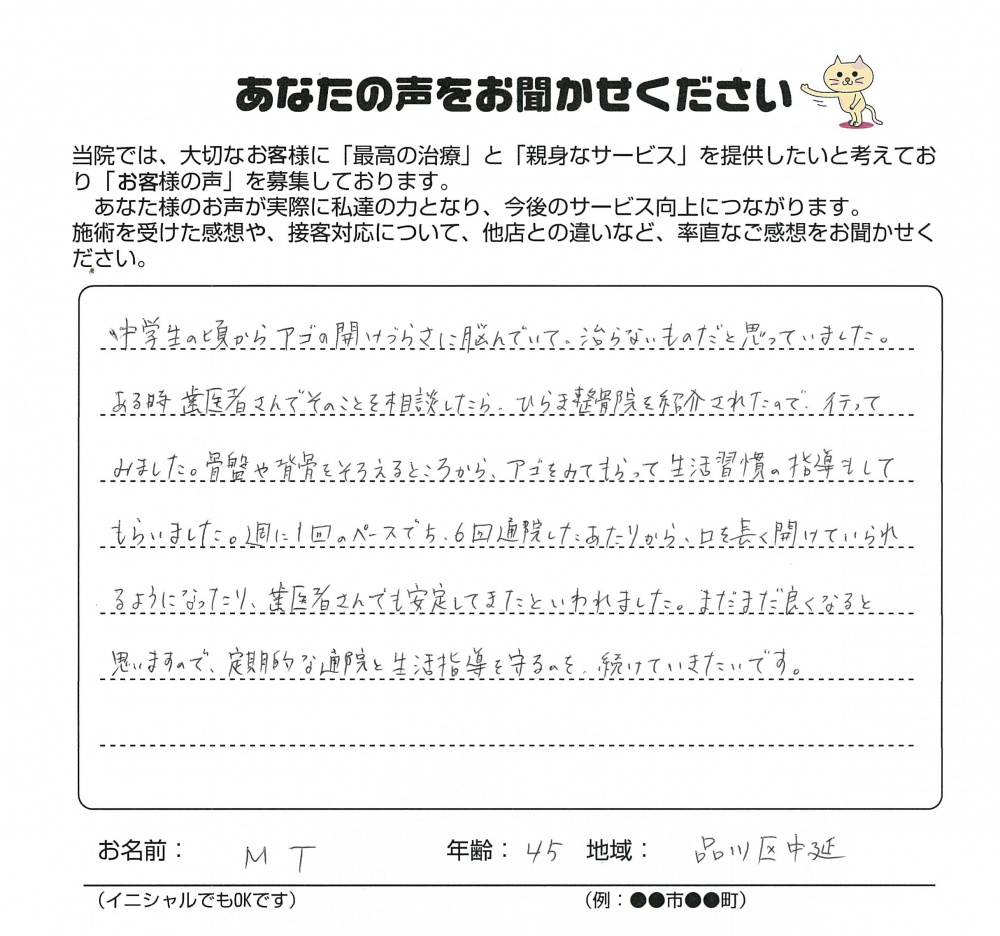 あなたの声をお聞かせください
当院では、大切なお客様に「最高の治療」と「親身なサービス」を提供したいと考えてお
り「お客様の声」を募集しております。
あなた様のお声が実際に私達の力となり、今後のサービス向上につながります。
施術を受けた感想や、接客対応について、他店との違いなど、率直なご感想をお聞かせく
ださい。
中学生の頃からアゴの開けづらさに悩んでいて、治らないものだと思っていました。
ある時歯医者さんでそのことを相談したら、ひらま整骨院を紹介されたので、行って
みました。骨盤や背骨をそろえるところから、アゴをみてもらって生活習慣の指導もして
もらいました。週に1回のペースで5、6回通院したあたりから、口を長く開けていられ
るようになったり、歯医者さんでも安定してきたといわれました。まだまだ良くなると
思いますので、定期的な通院と生活指導を守るのを、続けていきたいです。
お名前： M T 年齢： 45 地域： 品川区中延
（イニシャルでもOKです） （例：●●市●●町）